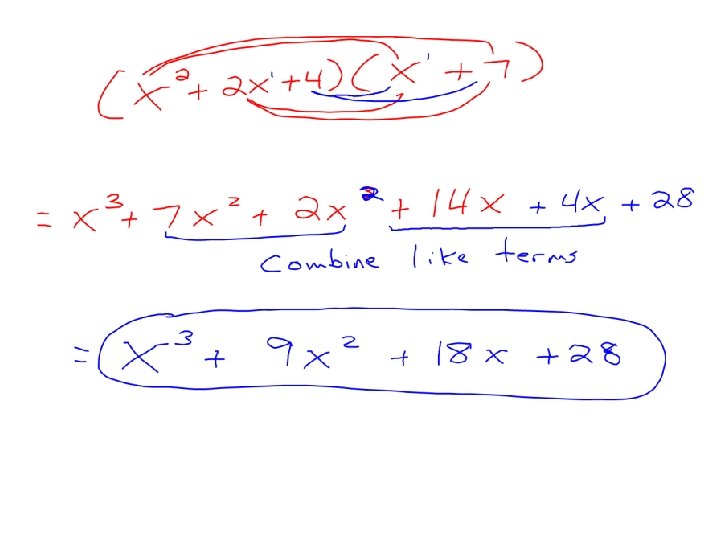 (x²+2x¹+4)(x¹+7)
= x³+7x²+2x²+14x+4x+28
combine like terms
= x³+9x²+18x+28